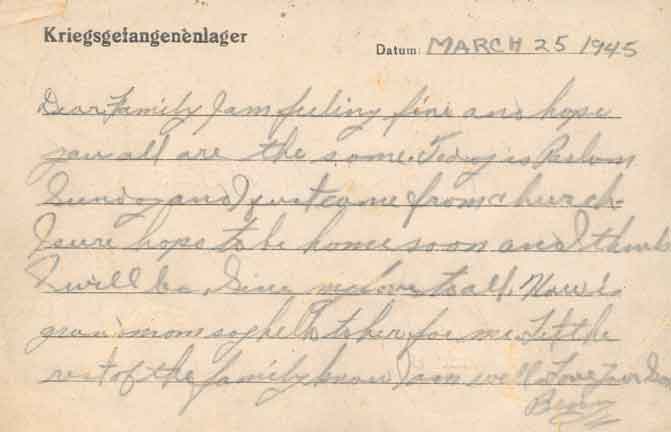 Kriegsgefangenenlager
Datum: MARCH 25 1945
Dear Family I am feeling fine and hope
you all are the same. Today is Palm
Sunday and I just came from church
I sure hope to be home soon and I think
I will be. Give my love to all. How is
grandmom say hello to her for me. Let the
rest of the family know I am well. Love Your Son